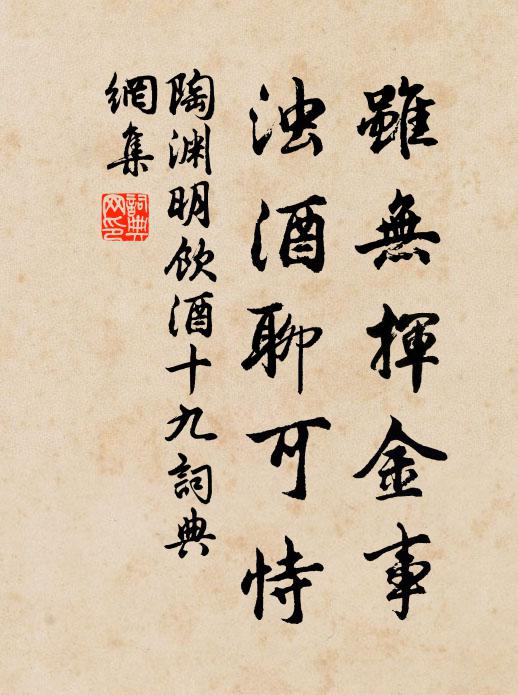 雖無揮金事
浊酒聊可恃
陶渊明飲酒十九詞典
網集
詞典
网印